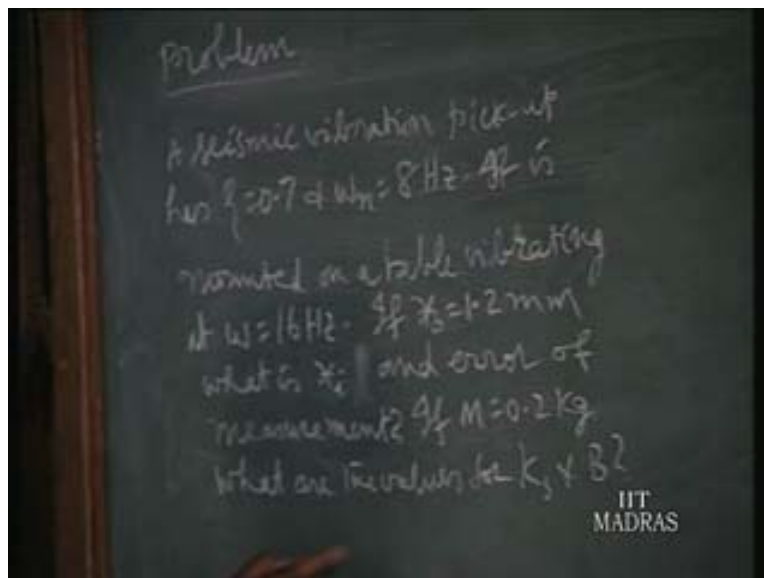 Problem
A seismic vibration pick-up
has ξ=0.7 & ωn=8Hz. If is
mounted on a table vibrating
at ω=16Hz. If x₀=1.2mm
what is xi and error of
measurement? If M=0.2Kg
What are the values for Ks & B?
IIT
MADRAS